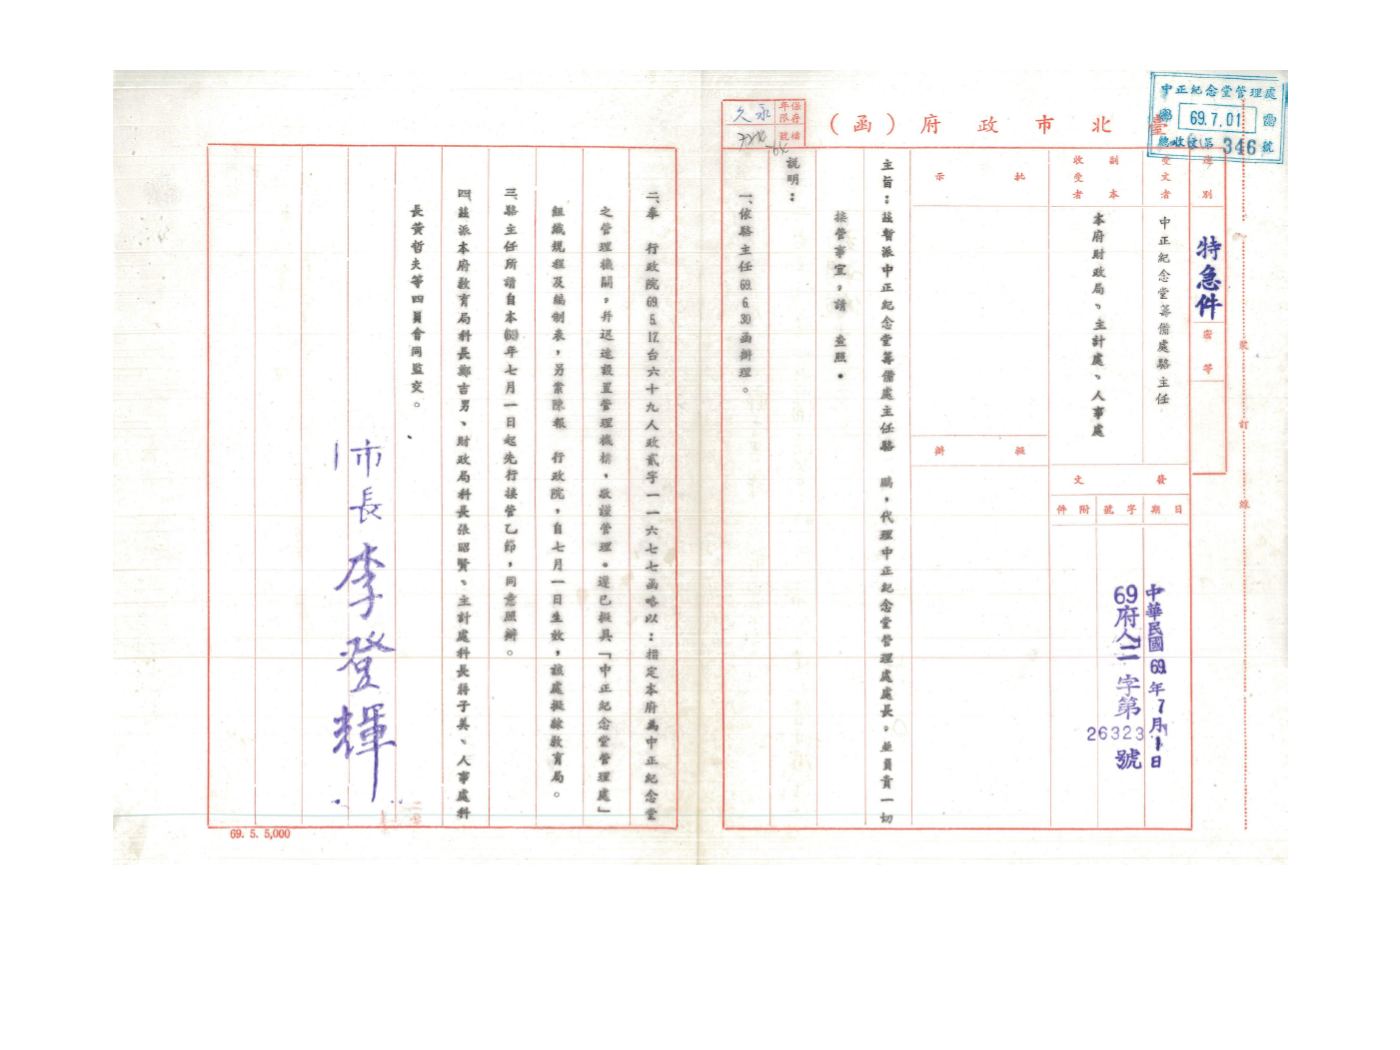 中正紀念堂管理處
69.7.01
總收文第346號
臺北市政府(函)
保存年限
永久
檔號
速別
特急件
密等
受文者
中正紀念堂籌備處駱主任
副本收受者
本府財政局、主計處、人事處
發文
日期
字號
附件
中華民國69年7月1日
69府人二字第26323號
批示
擬辦
裝
訂
線
主旨:茲暫派中正紀念堂籌備處主任駱 鵬,代理中正紀念堂管理處處長,並負責一切
接管事宜,請 查照。
說明:
一、依駱主任69.6.30函辦理。
二、奉 行政院69.5.17台六十九人政貳字一一六七七函略以:指定本府為中正紀念堂
之管理機關,并迅速設置管理機構,敬謹管理。遵已擬具「中正紀念堂管理處」
組織規程及編制表,另案陳報 行政院,自七月一日生效,該處擬隸教育局。
三、駱主任所請自本(69)年七月一日起先行接管乙節,同意照辦。
四、茲派本府教育局科長鄭吉男、財政局科長張昭賢、主計處科長蔣子英、人事處科
長黃哲夫等四員會同監交。
市長李登輝
69. 5. 5,000